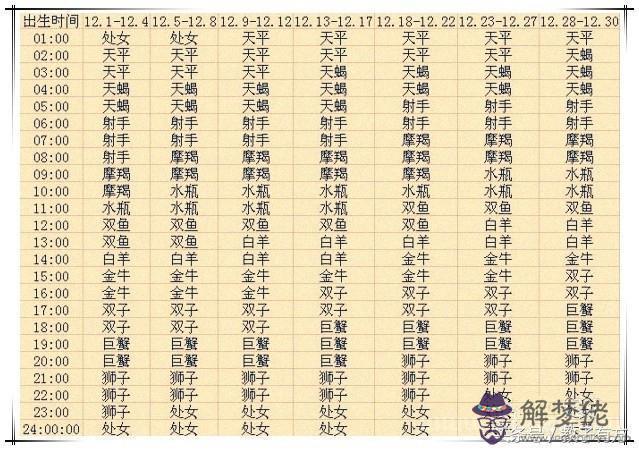 出生时间 12.1-12.4 12.5-12.8 12.9-12.12 12.13-12.17 12.18-12.22 12.23-12.27 12.28-12.30
01:00 处女 处女 天平 天平 天平 天平 天平
02:00 天平 天平 天平 天平 天平 天平 天蝎
03:00 天平 天平 天平 天蝎 天蝎 天蝎 天蝎
04:00 天蝎 天蝎 天蝎 天蝎 天蝎 天蝎 天蝎
05:00 天蝎 天蝎 天蝎 天蝎 射手 射手 射手
06:00 射手 射手 射手 射手 射手 射手 射手
07:00 射手 射手 射手 射手 摩羯 摩羯 摩羯
08:00 射手 摩羯 摩羯 摩羯 摩羯 摩羯 摩羯
09:00 摩羯 摩羯 摩羯 摩羯 摩羯 水瓶 水瓶
10:00 摩羯 水瓶 水瓶 水瓶 水瓶 水瓶 水瓶
11:00 水瓶 水瓶 水瓶 水瓶 双鱼 双鱼 双鱼
12:00 双鱼 双鱼 双鱼 双鱼 双鱼 白羊 白羊
13:00 双鱼 双鱼 白羊 白羊 白羊 白羊 白羊
14:00 白羊 白羊 白羊 白羊 金牛 金牛 金牛
15:00 金牛 金牛 金牛 金牛 金牛 金牛 双子
16:00 金牛 金牛 金牛 双子 双子 双子 双子
17:00 双子 双子 双子 双子 双子 双子 巨蟹
18:00 双子 双子 双子 巨蟹 巨蟹 巨蟹 巨蟹
19:00 巨蟹 巨蟹 巨蟹 巨蟹 巨蟹 巨蟹 巨蟹
20:00 巨蟹 巨蟹 巨蟹 巨蟹 狮子 狮子 狮子
21:00 狮子 狮子 狮子 狮子 狮子 狮子 狮子
22:00 狮子 狮子 狮子 狮子 狮子 处女 处女
23:00 狮子 处女 处女 处女 处女
24:00:00 处女 处女 处女 处女 处女
解梦佬